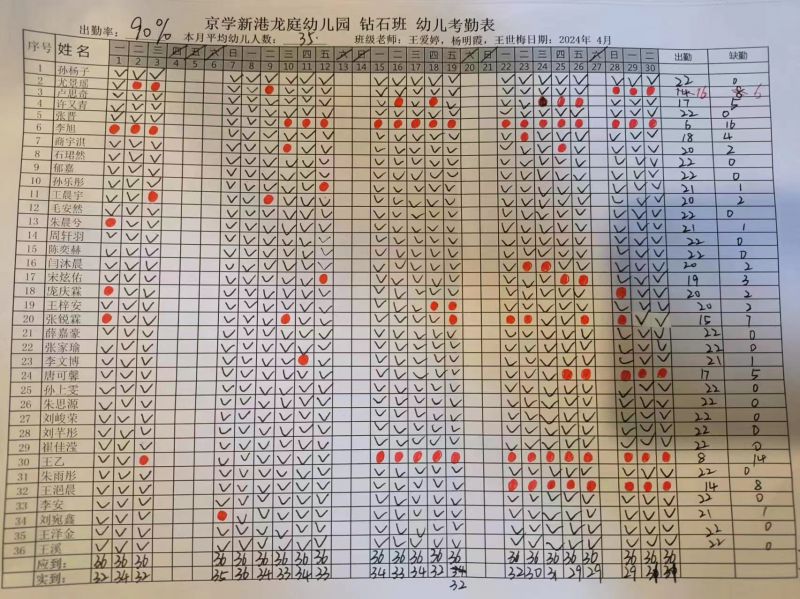 京学新港龙庭幼儿园 钻石班 幼儿考勤表
出勤率: 90%
本月平均幼儿人数: 35. 班级老师: 王爱婷, 杨明霞, 王世梅日期: 2024年 4月
序号 姓名 一 二 三 四 五 六 日 一 二 三 四 五 六 日 一 二 三 四 五 六 日 一 二 三 四 五 六 日 一 二 出勤 缺勤
1 2 3 4 5 6 7 8 9 10 11 12 13 14 15 16 17 18 19 20 21 22 23 24 25 26 27 28 29 30
1 孙杨子 22 0
2 尤景瑶
3 卢思奇 14 16 8 6
4 许又青 17 5
5 张晋 22 0
6 李旭 6 16
7 商宇淇 18 4
8 石珺然 20 2
9 郁嘉 22 0
10 孙乐彤 22 0
11 王晨宇 21 1
12 毛安然 20 2
13 朱晨兮 22 0
14 周轩羽 21 1
15 陈奕赫 22 0
16 闫沐晨 22 0
17 宋炫佑 20 2
18 庞庆霖 19 3
19 王梓安 20 2
20 张锐霖 20 2
21 薛嘉豪 15 7
22 张家瑜 22 0
23 李文博 22 0
24 唐可馨 21 1
25 孙上雯 17 5
26 朱思源 22 0
27 刘峻荣 22 0
28 刘芊彤 22 0
29 崔佳滢 22 0
30 王乙 22 0
31 朱雨彤 8 14
32 王浥晨 22 0
33 李安 14 8
34 刘宛鑫 22 0
35 王泽金 21 1
36 王溪 22 0
22 0
应到: 36 36 36 36 36 36 36 36 36 36 36 36 36 36 36 36 36 36 36 36 36 36
实到: 32 34 32 35 36 34 33 34 33 34 34 34 32 32 30 29 29 29
32